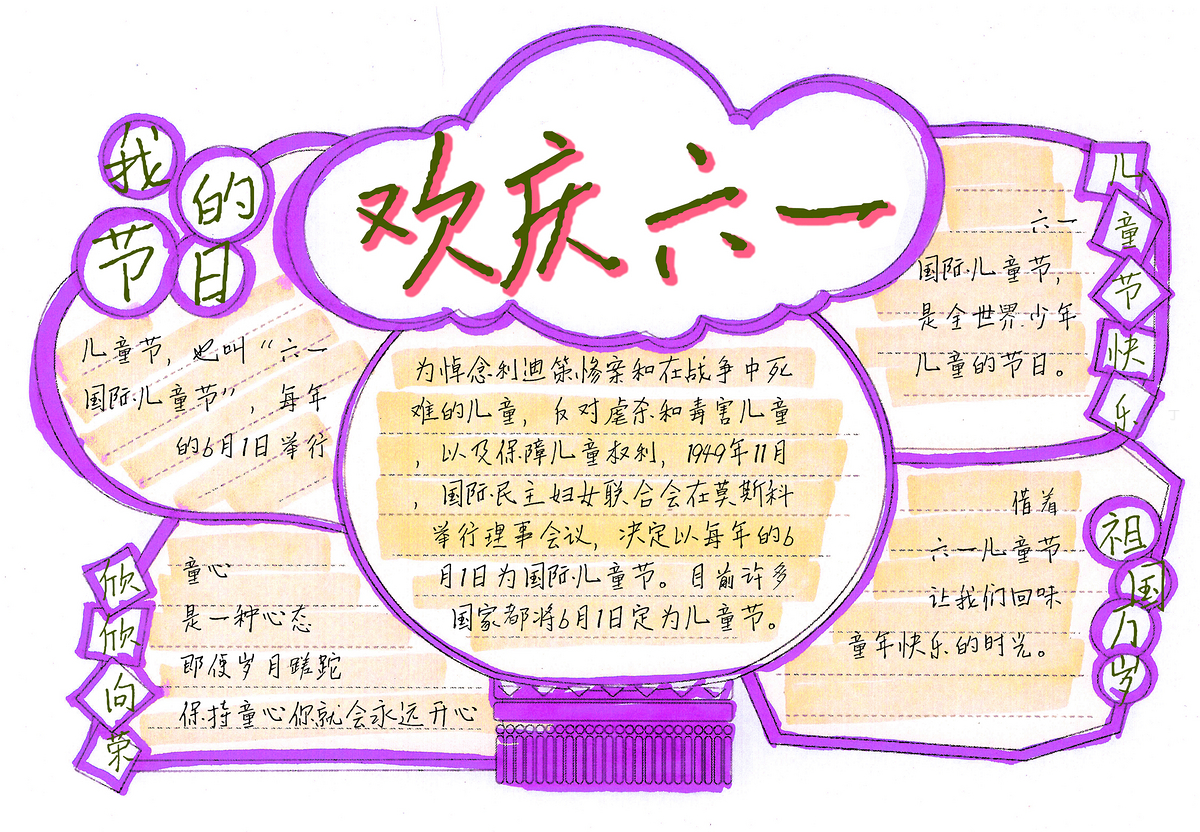 欢庆六一
我的
节日
儿童节，也叫“六一
国际儿童节”，每年
的6月1日举行
为悼念利迪策惨案和在战争中死
难的儿童，反对虐杀和毒害儿童
，以及保障儿童权利，1949年11月
，国际民主妇女联合会在莫斯科
举行理事会议，决定以每年的6
月1日为国际儿童节。目前许多
国家都将6月1日定为儿童节。
儿童节快乐
六一
国际儿童节，
是全世界少年
儿童的节日。
欣欣向荣
童心
是一种心态
即便岁月蹉跎
保持童心你就会永远开心
借着
六一儿童节
让我们回味
童年快乐的时光。
祖国万岁